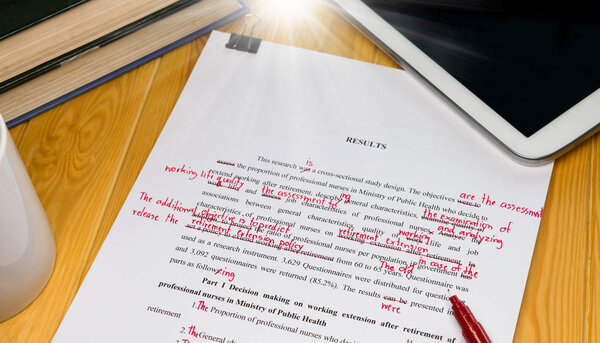 RESULTS
is
This research was a cross-sectional study design. The objectives were to are the assessment
assess the proportion of professional nurses in Ministry of Public Health who decide to
extend working after retirement, describe general characteristics, the examination of
working life quality the assessment of ing
and job characteristics of professional nurses and analyzing
associations between general characteristics, quality of working life and job
characteristics of professional nurses on working extension after retirement in
The additional objective is to predict retirement extension in case of the
the ratio of professional nurses per population if government has
release the retirement extension policy from 60 to 65 years. The old
used as a research instrument. 3,629 Questionnaires were distributed for
and 3,092 questionnaires were returned (85.2%). The results can be presented in
parts as following were
Part 1 Decision making on working extension after retirement of
professional nurses in Ministry of Public Health
1. The Proportion of professional nurses who decide to
retirement
1. The General